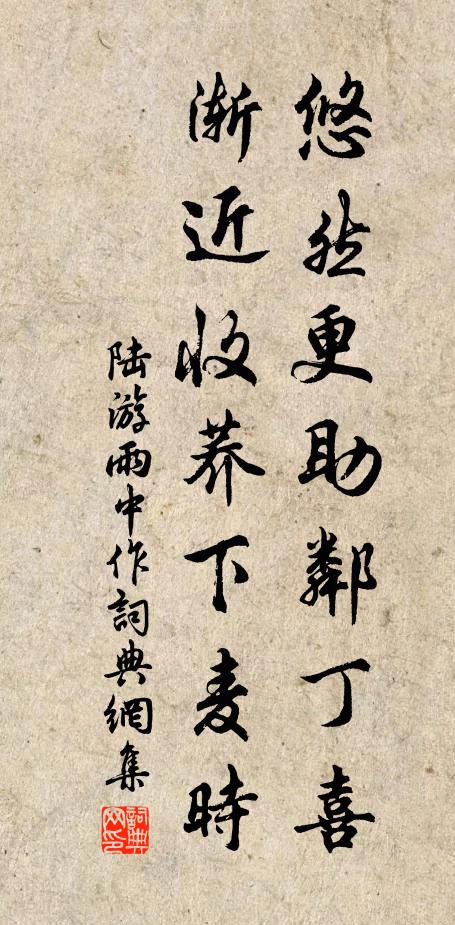 悠然更助鄰丁喜
漸近收荞下麦時
陆游雨中作詞典網集
詞典網印